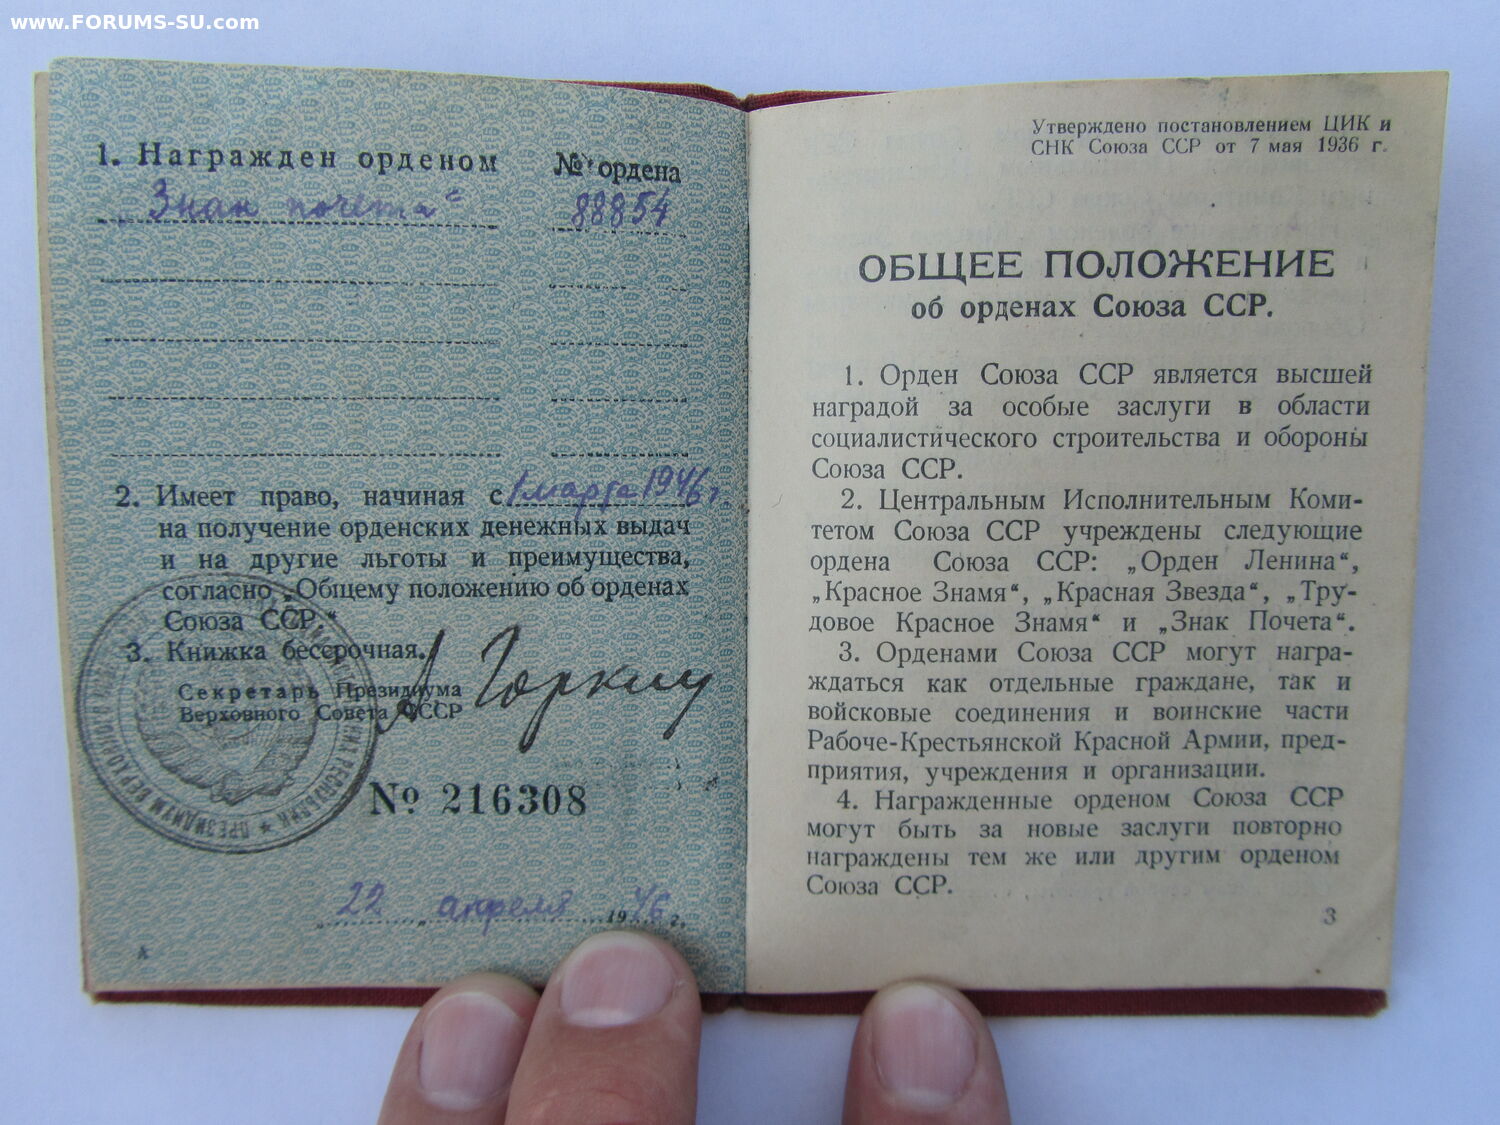 www.FORUMS-SU.com
1. Награжден орденом № ордена
„Знак почета“ 88854
2. Имеет право, начиная с 1 марта 1946 г.
на получение орденских денежных выдач
и на другие льготы и преимущества,
согласно „Общему положению об орденах
Союза ССР.“
3. Книжка бессрочная.
Секретарь Президиума
Верховного Совета СССР
А Горкин
№ 216308
„22 „ апреля 1946 г.
А
Утверждено постановлением ЦИК и
СНК Союза ССР от 7 мая 1936 г.
ОБЩЕЕ ПОЛОЖЕНИЕ
об орденах Союза ССР.
1. Орден Союза ССР является высшей
наградой за особые заслуги в области
социалистического строительства и обороны
Союза ССР.
2. Центральным Исполнительным Коми-
тетом Союза ССР учреждены следующие
ордена Союза ССР: „Орден Ленина“,
„Красное Знамя“, „Красная Звезда“, „Тру-
довое Красное Знамя“ и „Знак Почета“.
3. Орденами Союза ССР могут награ-
ждаться как отдельные граждане, так и
войсковые соединения и воинские части
Рабоче-Крестьянской Красной Армии, пред-
приятия, учреждения и организации.
4. Награжденные орденом Союза ССР
могут быть за новые заслуги повторно
награждены тем же или другим орденом
Союза ССР.
3